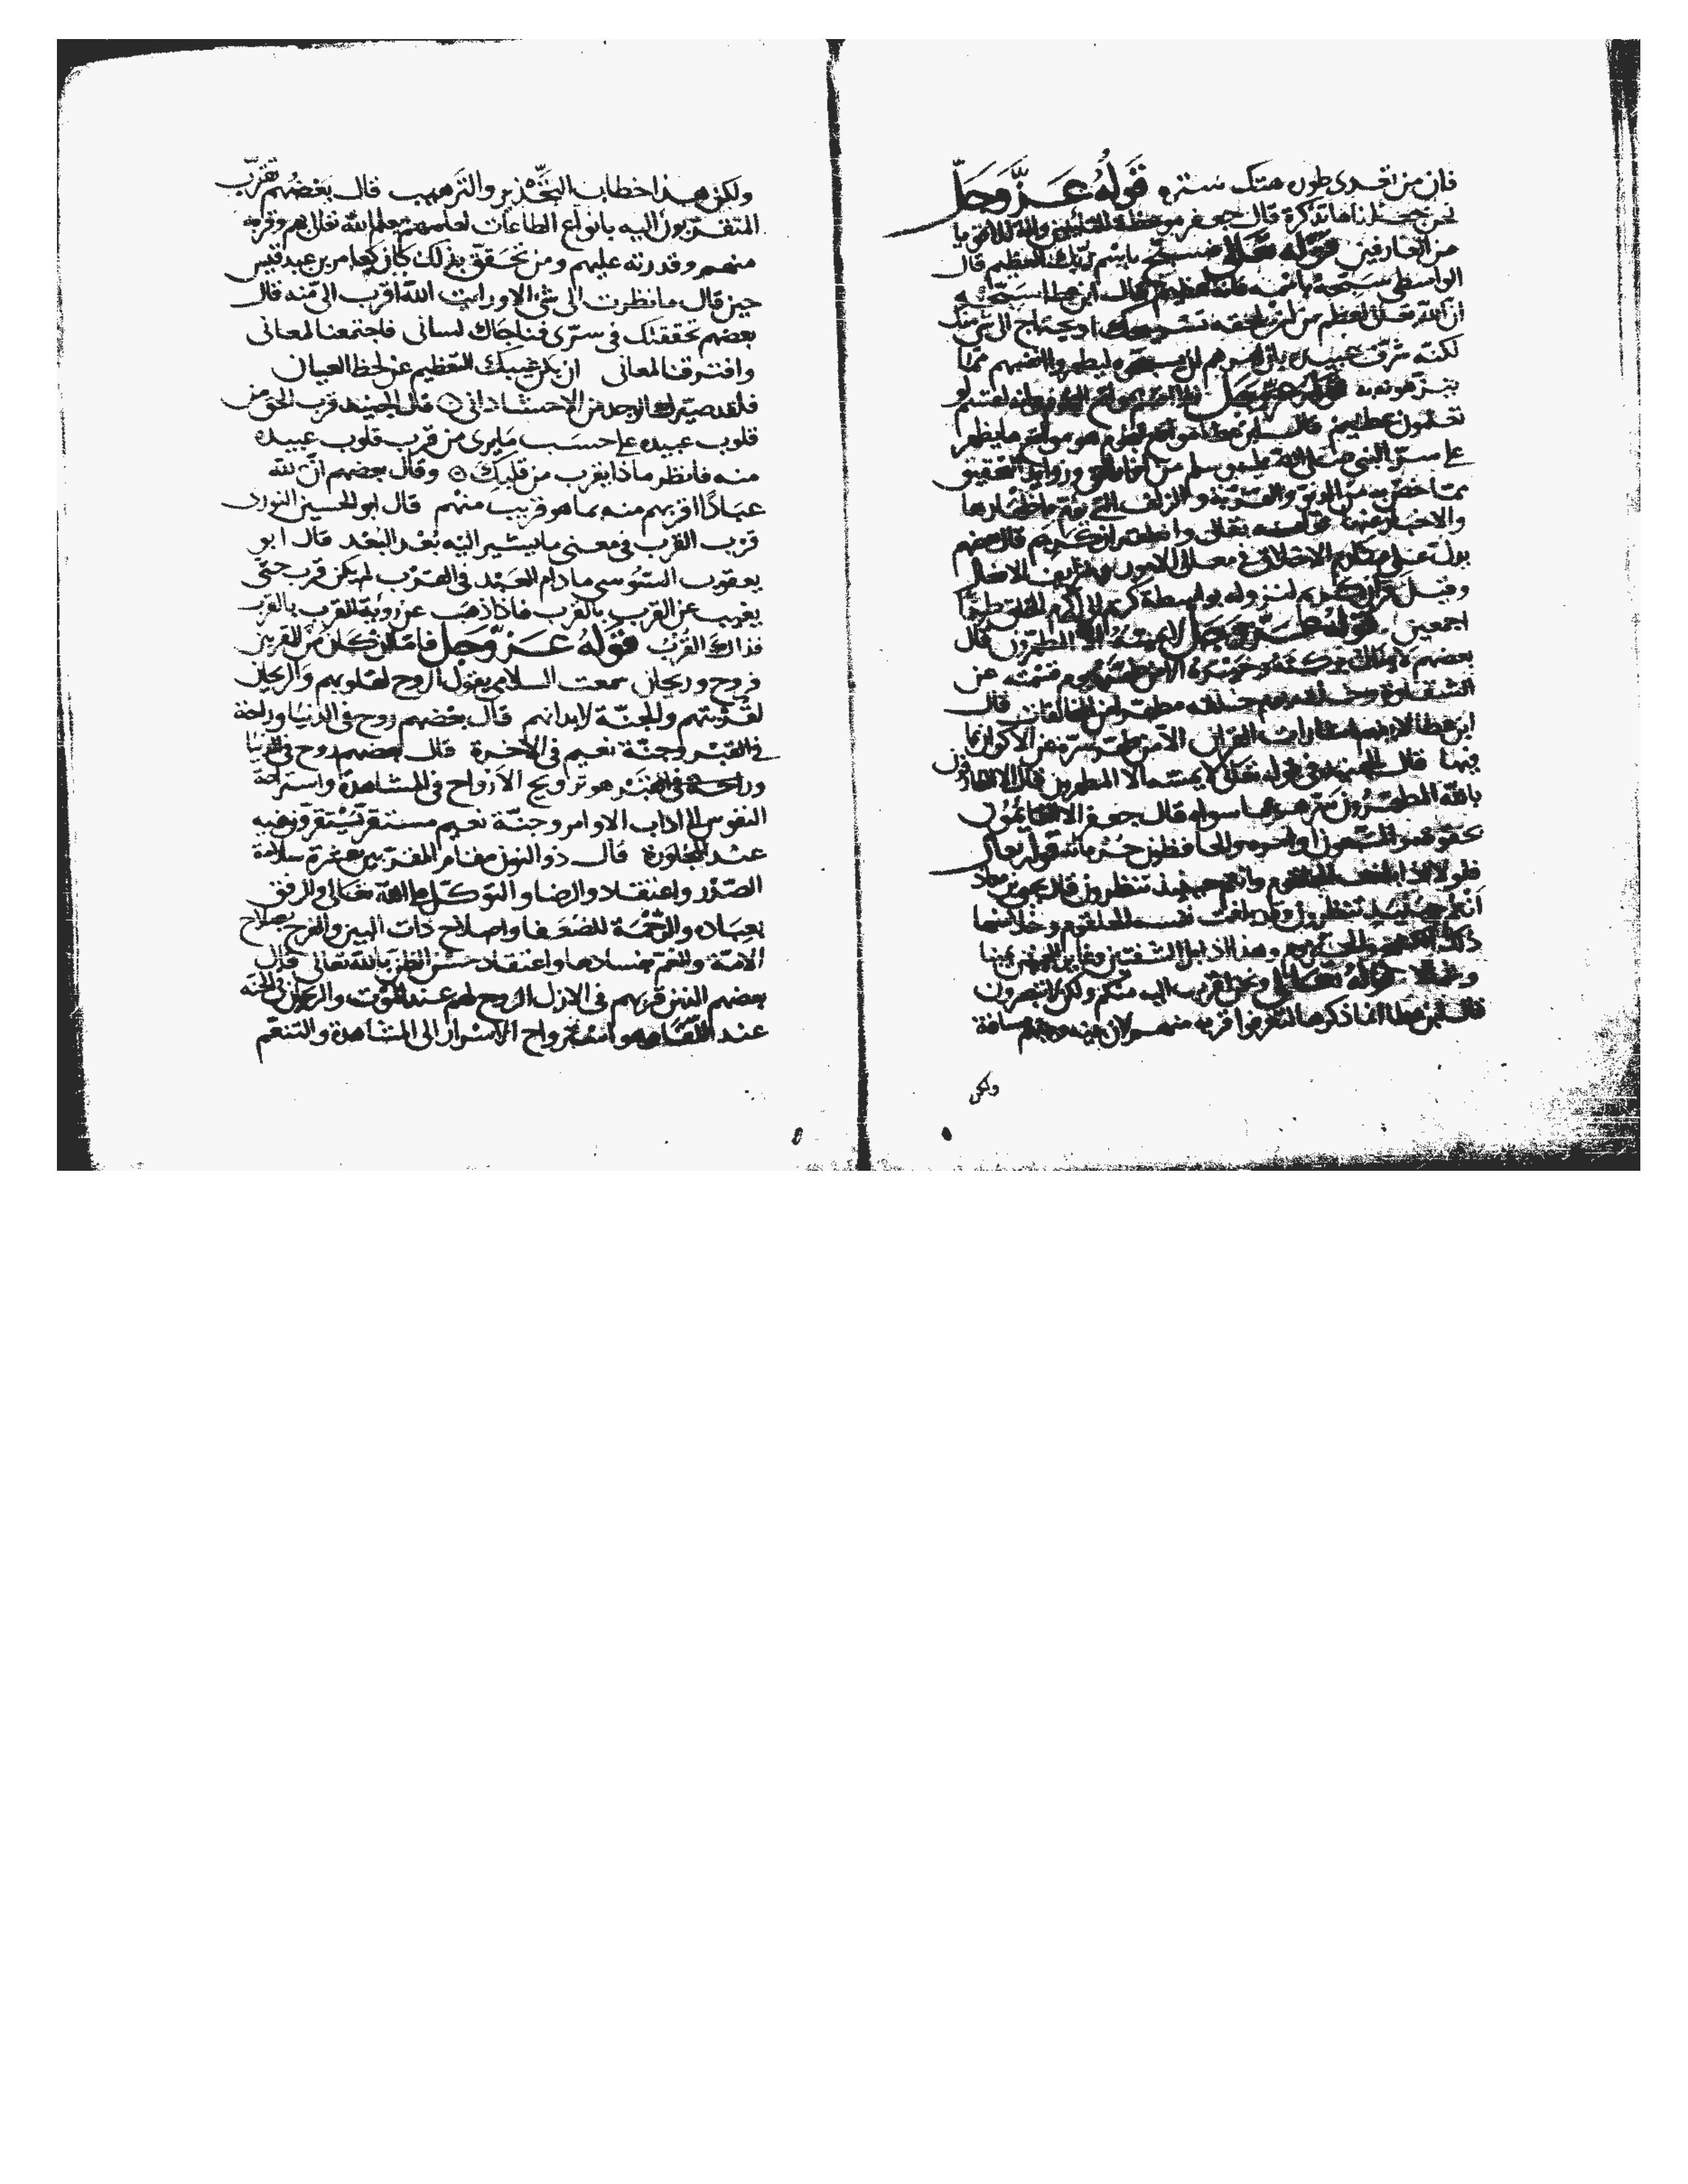 فان من تعدى طوره هتك ستره قوله عز وجل
نحن جعلناها تذكرة قال جعفر موعظة للتائبين
من العارفين قوله تعالى فسبح باسم ربك العظيم قال
الواسطى سبحه باسمه فانه عظيم قال ابن عطا سبحه
ان الله تعالى اعظم من ان يلحقه تسبيحك او يحتاج الى شى منك
لكنه شرف عبيده بان امرهم ان يسبحوه ليطهروا انفسهم مما
ينزهونه به قوله عز وجل فلا اقسم بمواقع النجوم وانه لقسم لو
تعلمون عظيم قال ابن عطا مواقع النجوم هو مواقع ما يظهر
على سر النبى صلى الله عليه وسلم من الحق وزوايد التحقيق
مما خص به من الدنو والقربة والزلف التى لم اظهارها
والاخبار عنها قوله تعالى وانه لقران كريم قال بعضهم
يدل على مكارم الاخلاق ومعالى الامور وشرايف الافعال
وقيل قران كريم لنزوله بواسطة كريم الى اكرم الخلق طرا
اجمعين قوله عز وجل لا يمسه الا المطهرون قال
بعضهم
ابن عطا لا يفهم اشارات القران الا من طهر سره من الاكوان بما
فيها قال الجنيد فى قوله تعالى لا يمسه الا المطهرون قال الا العارفون
بالله المطهرون سرهم عما سواه قال جعفر الا القائمون
بحقوقه والمتبعون اوامره والحافظون حرماته قوله تعالى
فلولا اذا بلغت الحلقوم وانتم حينئذ تنظرون قال يحيى بن معاذ
انتم حينئذ تنظرون وقد بلغت نفسه الحلقوم
قوله تعالى ونحن اقرب اليه منكم ولكن لا تبصرون
قال ابن عطا انما ذكر هذا لتعرفوا قربه منهم لان بينه وبينهم مسافة
ولكن
ولكن هذا خطاب التحذير والترهيب قال بعضهم تقرب
المتقربون اليه بانواع الطاعات لعلمهم بعلم الله تعالى بهم وقربه
منهم وقدرته عليهم ومن تحقق بذلك كان كعامر بن عبد قيس
حين قال ما نظرت الى شئ الا ورايت الله اقرب الى منه قال
بعضهم تحققتك فى سرى فناجاك لسانى فاجتمعنا لمعانى
وافترقنا لمعانى ان يكن غيبك التعظيم عن لحظ العيان
فلقد صيرك الوجد من الاحشاء دانى قال الجنيد قرب الحق من
قلوب عبيده على حسب ما يرى من قرب قلوب عبيده
منه فانظر ماذا يقرب من قلبك وقال بعضهم ان لله
عبادا اقربهم منه بما هو قريب منهم قال ابو الحسين النورى
قرب القرب فى معنى ما يشير اليه بعد البعد قال ابو
يعقوب السوسى ما دام العبد فى القرب لم يكن قرب حتى
يغيب عن القرب بالقرب فاذا ذهب عن روية القرب بالقرب
فذاك القرب قوله عز وجل فاما ان كان من المقربين
فروح وريحان سمعت السلامى يقول الروح لقلوبهم والريحان
لقربتهم والجنة لابدانهم قال بعضهم روح فى الدنيا وراحة
فى القبر وجنة نعيم فى الاخرة قال بعضهم روح فى الدنيا
وراحة فى القبر هو ترويح الارواح فى المشاهدة واستراحة
النفوس الى اداب الاوامر وجنة نعيم مستقر يستقر ونعيمه
عند المجاورة قال ذو النون مقام المقربين عشرة سلامة
الصدر واعتقاد والرضا والتوكل على الله تعالى والرفق
بعباده والرحمة للضعفا واصلاح ذات البين والفرح بصلاح
الامة والغم بفسادها واعتقاد حسن الظن بالله تعالى قال
بعضهم الذين قربهم فى الازل الروح لهم عند الموت والريحان فى الجنة
عند اللقا هو ارواح الاسرار الى المشاهدة والتنعم